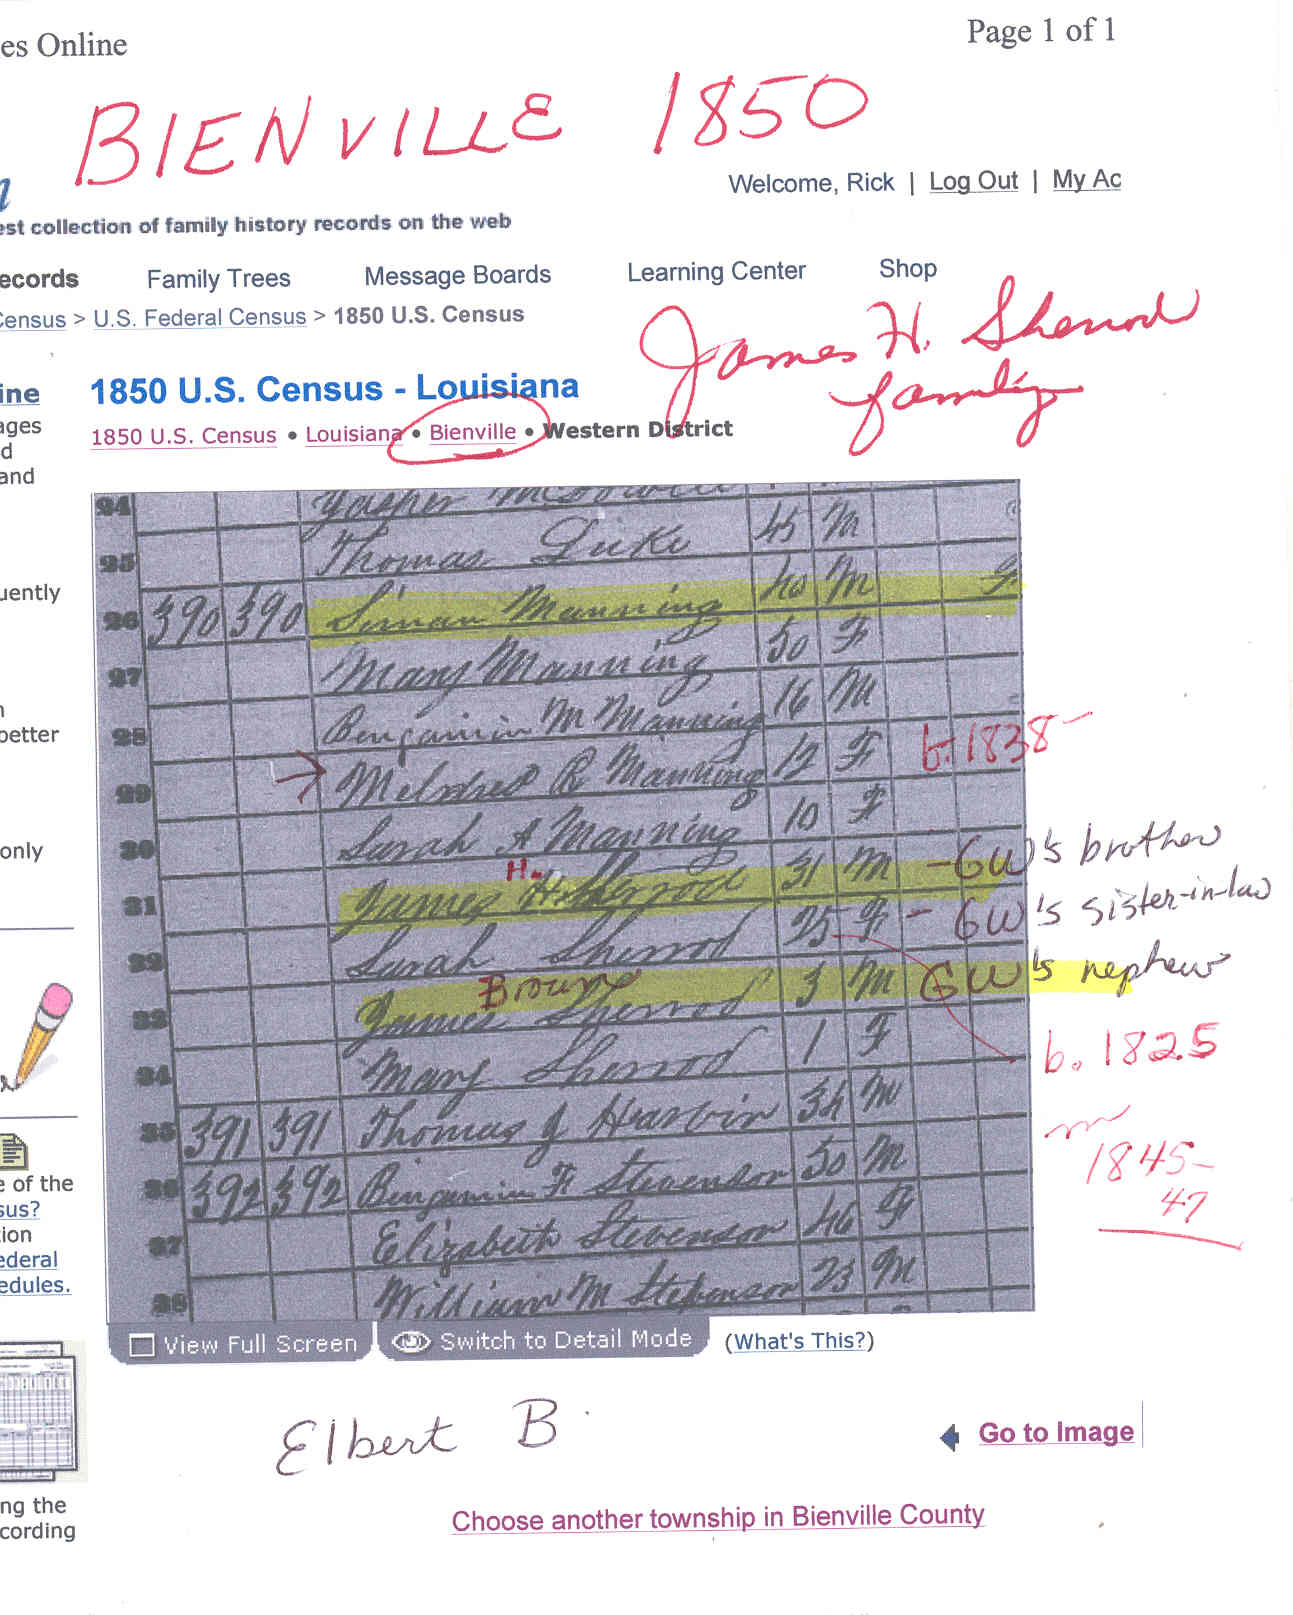 es Online
Page 1 of 1
BIENVILLE 1850
Welcome, Rick | Log Out | My Ac
est collection of family history records on the web
ecords Family Trees Message Boards Learning Center Shop
Census > U.S. Federal Census > 1850 U.S. Census
James H. Sherrod
family
ine
1850 U.S. Census - Louisiana
ages
1850 U.S. Census • Louisiana • Bienville • Western District
d
and
24
25 Thomas Luke 45 M
uently
26 390 390 Manning 40 M
27 Mary Manning 50 F
28 Benjamin M Manning 16 M
better
b. 1838-
29 Mildred R Manning 12 F
30 Sarah A Manning 10 F
only
H.
31 James H Sherrod 31 M - GW's brother
32 Sarah Sherrod 25 F - GW's sister-in-law
Brown
33 James Sherrod 3 M GW's nephew
34 Mary Sherrod 1 F
b. 1825
35 391 391 Thomas J 34 M
m
1845-
47
36 392 392 Benjamin F Stevenson 50 M
e of the
sus?
37 Elizabeth Stevenson 46 F
tion
ederal
38 William M Stephenson 23 M
edules.
View Full Screen Switch to Detail Mode (What's This?)
Elbert B.
Go to Image
ng the
Choose another township in Bienville County
cording